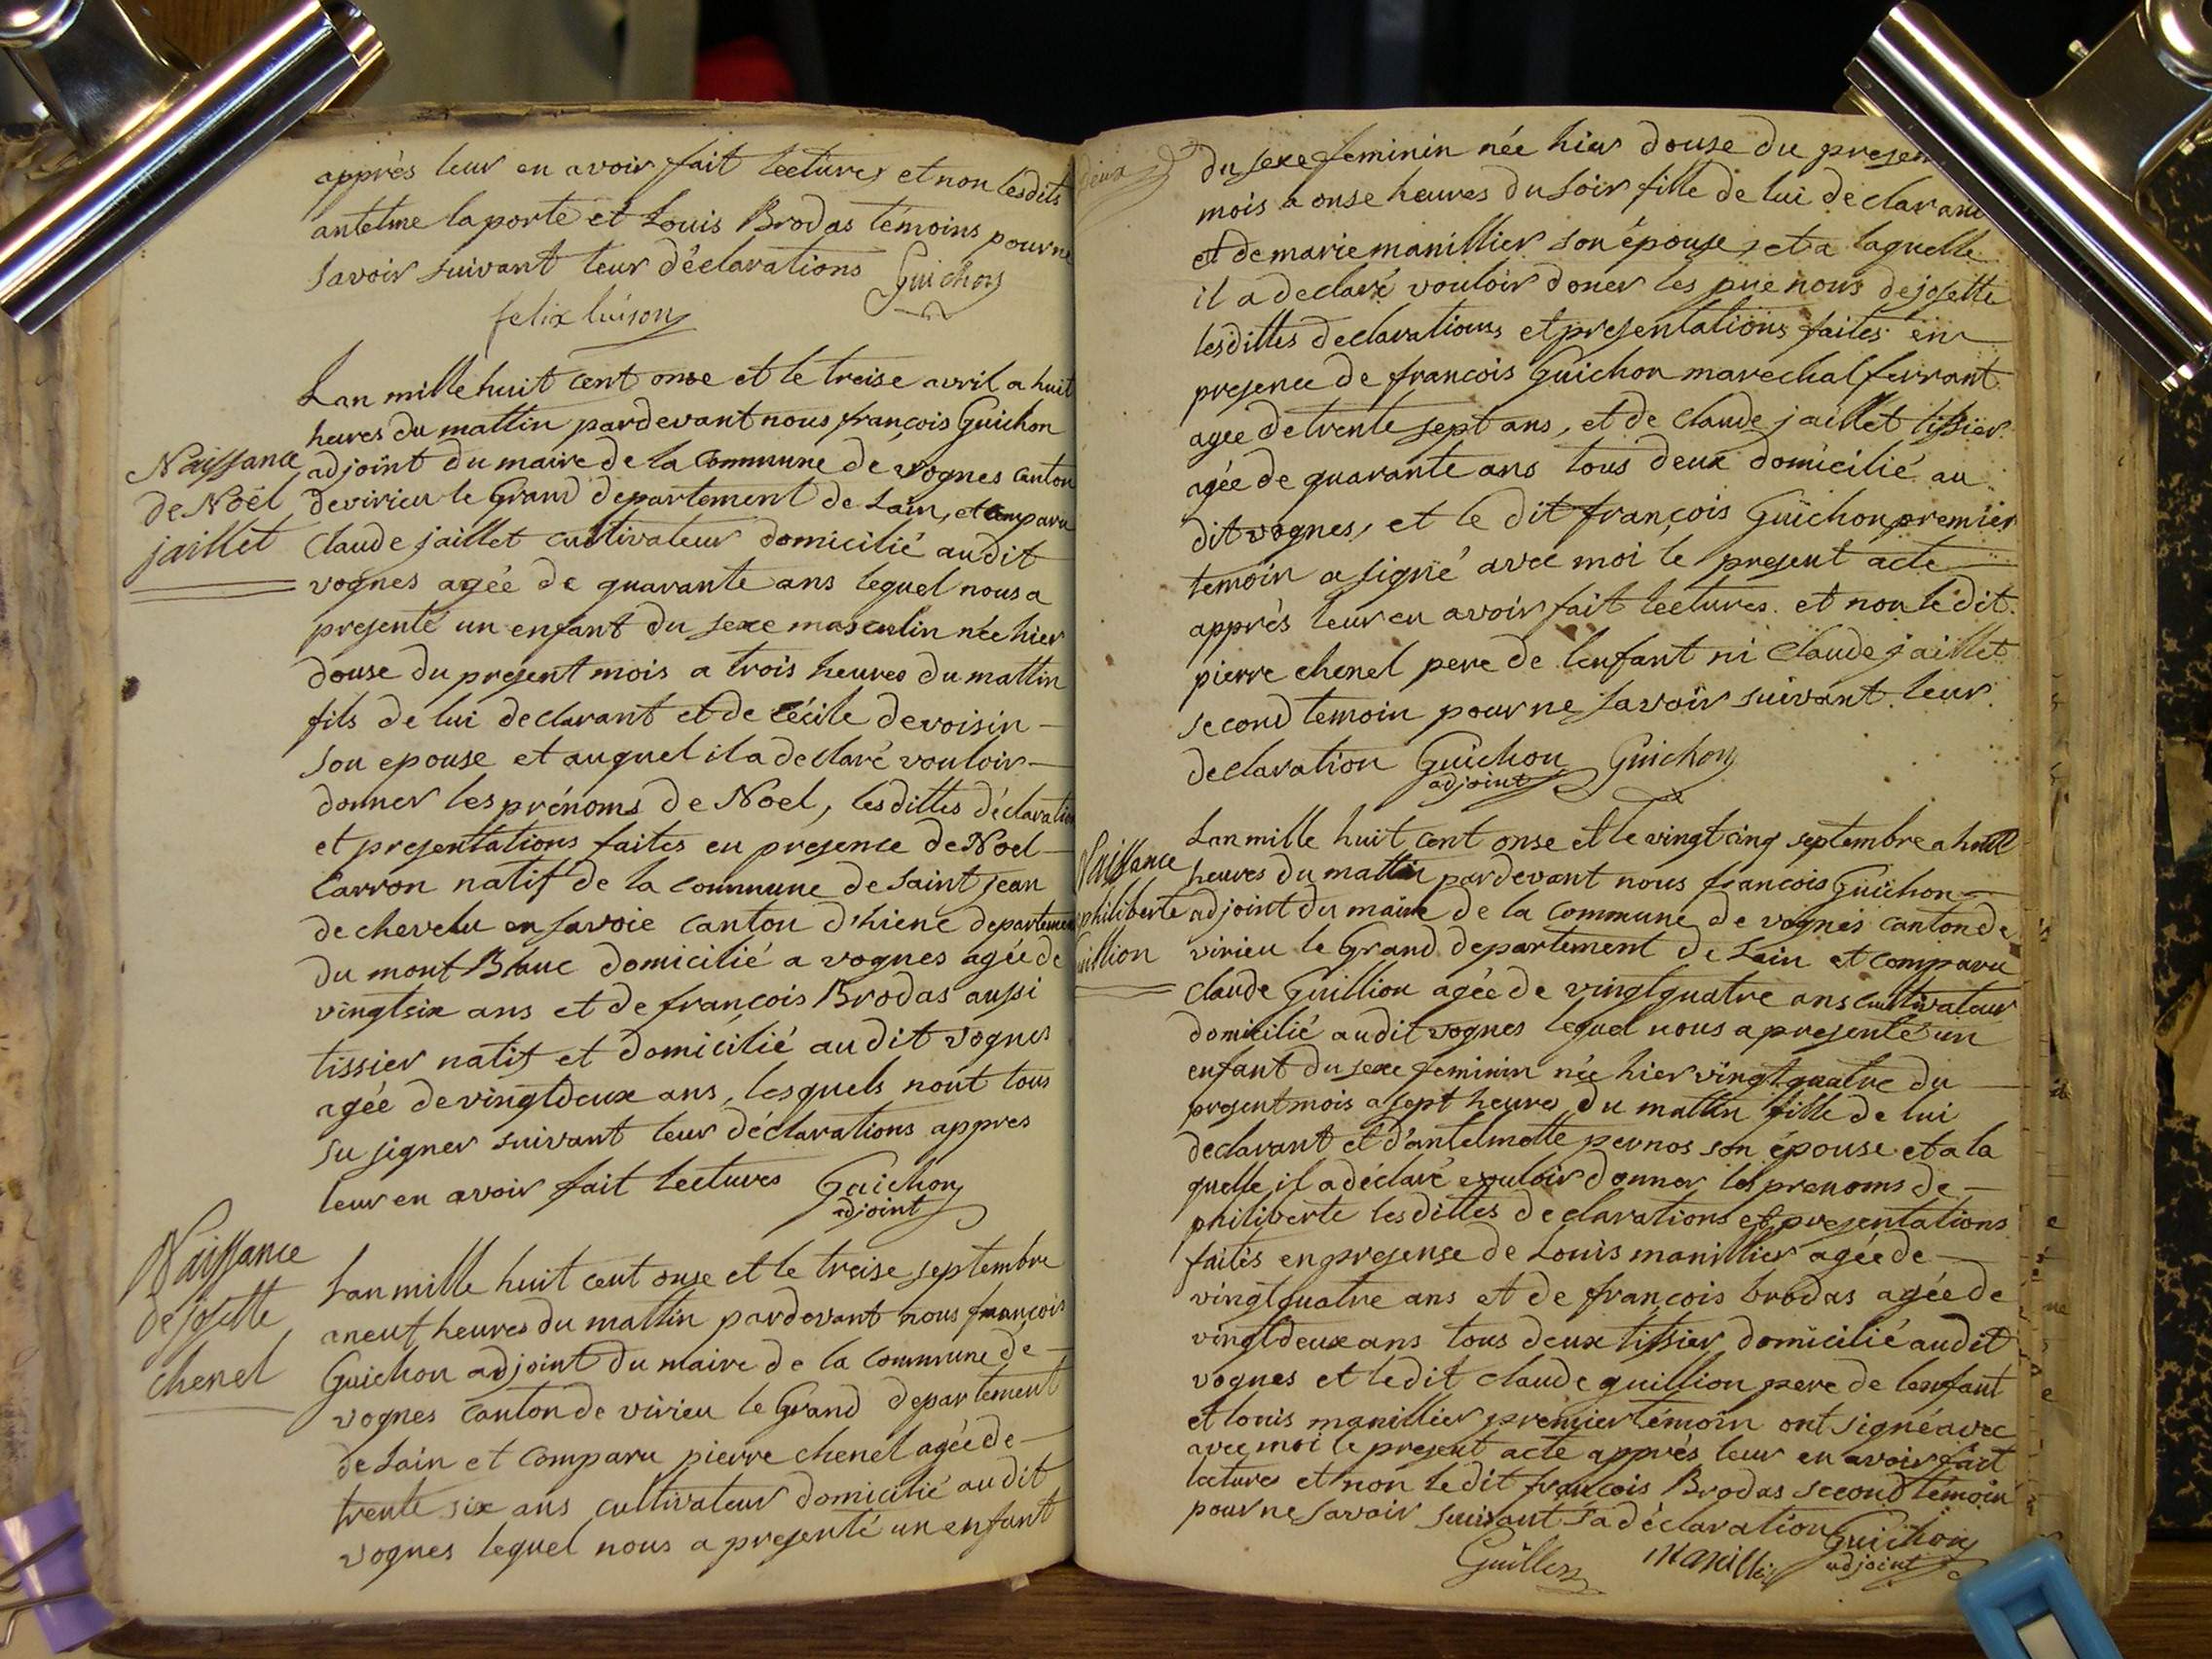 apprès leur en avoir fait lectures et non lesdits
antelme laporte et Louis Brodas témoins pour ne
savoir suivant leur déclarations Guichon
felix luison
Lan mille huit cent onse et le treise avril a huit
heures du mattin pardevant nous françois Guichon
Naissance
de Noël
jaillet
adjoint du maire de la Commune de vognes canton
de virieu le Grand departement de Lain, et comparu
Claude jaillet cultivateur domicilié audit
vognes agée de quarante ans lequel nous a
presenté un enfant du sexe masculin née hier
douse du present mois a trois heures du mattin
fils de lui declarant et de Cécile devoisin
son epouse et auquel il a declaré vouloir
donner les prénoms de Noel, lesdittes déclaration
et presentations faites en presence de Noel
Carron natif de la commune de saint jean
de chevelu en savoie canton d'hiene departement
du mont Blanc domicilié a vognes agée de
vingtsix ans et de françois Brodas aussi
tissier natif et domicilié audit vognes
agée de vingtdeux ans, lesquels nont tous
su signer suivant leur déclarations appres
leur en avoir fait lectures Guichon
adjoint
Naissance
de josette
chenel
Lan mille huit cent onse et le treise septembre
a neuf heures du mattin pardevant nous françois
Guichon adjoint du maire de la commune de
vognes canton de virieu le Grand departement
de Lain et comparu pierre chenel agée de
trente six ans cultivateur domicilié audit
vognes lequel nous a presenté un enfant
deux
du sexe feminin née hier douse du presen
mois a onse heures du soir fille de lui declarant
et de marie manillier son épouse, et a laquelle
il a declaré vouloir doner les prenoms de josette
lesdittes declarations et presentations faites en
presence de françois Guichon marechal ferrant
agée de trente sept ans, et de Claude jaillet tissier
agée de quarante ans tous deux domicilié au
dit vognes, et le dit françois Guichon premier
temoin a signé avec moi le present acte
apprès leur en avoir fait lectures. et non le dit
pierre chenel pere de lenfant ni Claude jaillet
second temoin pour ne savoir suivant leur
declaration Guichon Guichon
adjoint
Lan mille huit cent onse et le vingtcinq septembre a huit
Naissance
philiberte
uillion
heures du mattin pardevant nous françois Guichon
adjoint du maire de la commune de vognes canton de
virieu le Grand departement de Lain et comparu
Claude Guillion agée de vingtquatre ans cultivateur
domicilié audit vognes lequel nous a presenté un
enfant du sexe feminin née hier vingtquatre du
present mois a sept heures du mattin fille de lui
declarant et d'antelmette pernos son épouse et a la
quelle il a déclaré vouloir donner les prenoms de
philiberte lesdittes declarations et presentations
faites en presense de Louis manillier agée de
vingtquatre ans et de françois brodas agée de
vingtdeux ans tous deux tissier domicilié audit
vognes et ledit claude guillion pere de lenfant
et louis manillier premier témoin ont signé avec
avec moi le present acte apprès leur en avoir fait
lectures et non ledit françois Brodas second témoin
pour ne savoir suivant sa déclaration Guichon
adjoint
Guillion manillier